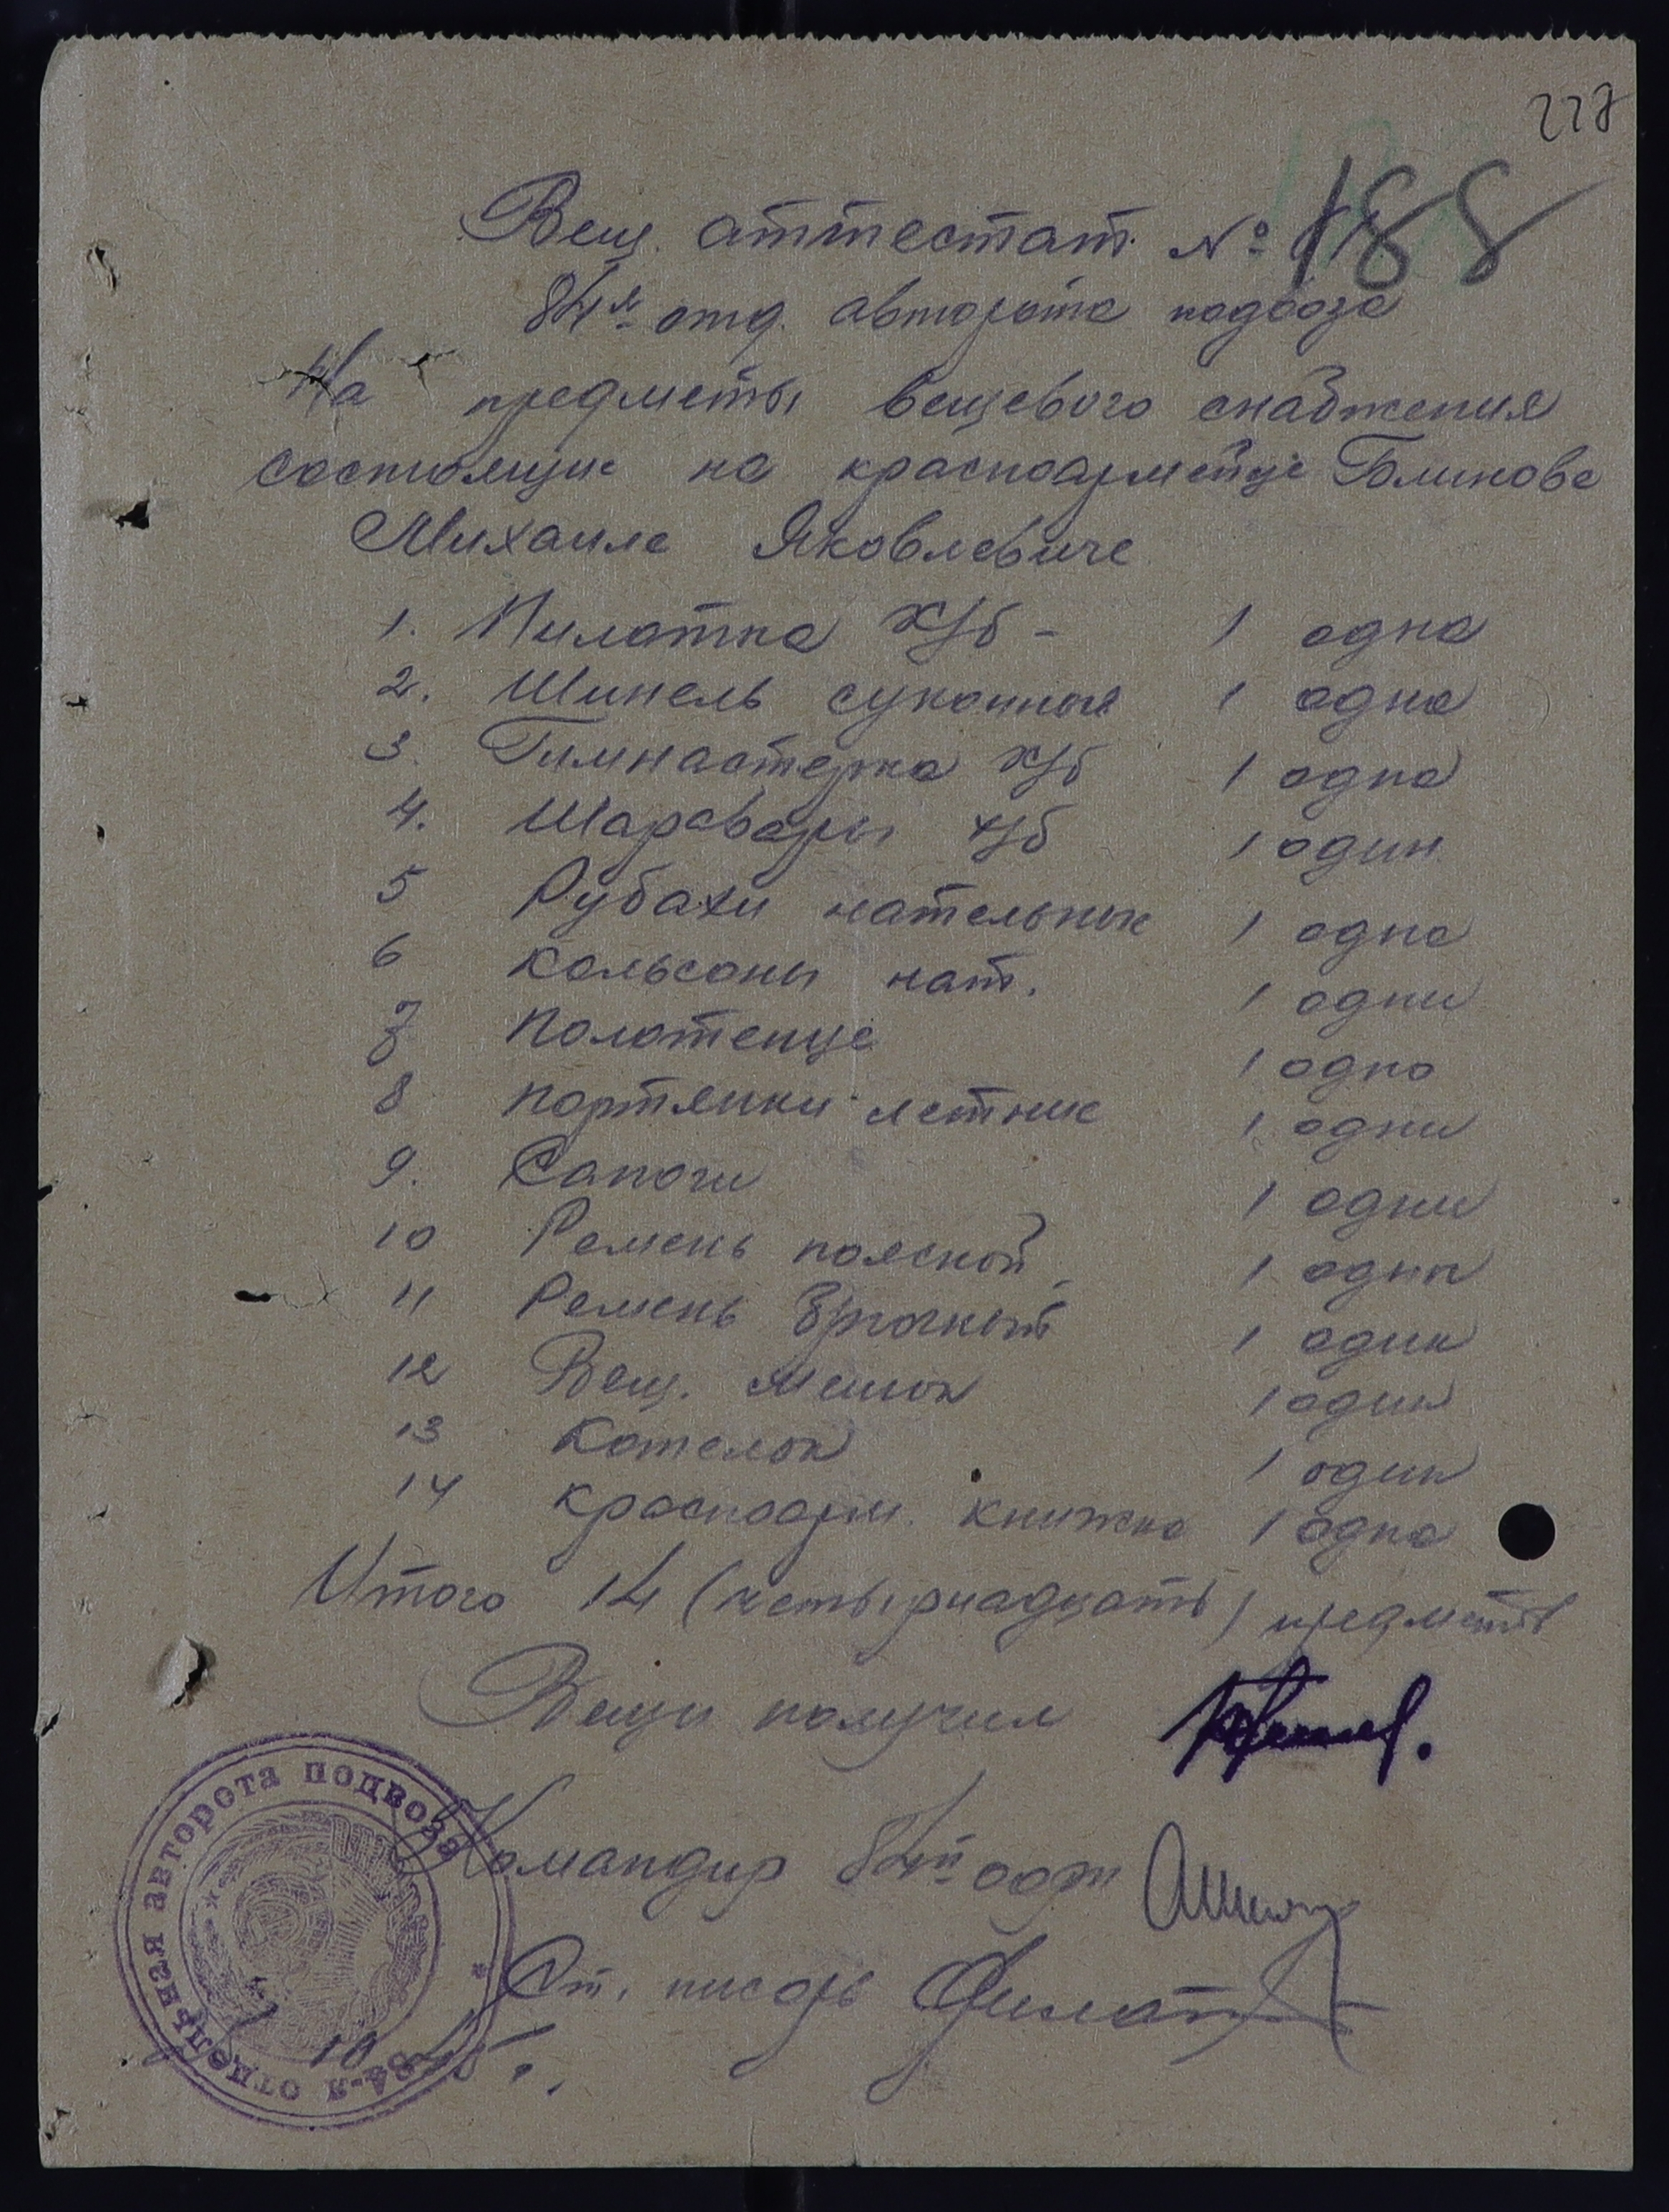 Вещ. аттестат №
188
84я отд. авторота подвоза
На предметы вещевого снабжения
состоящие на красноармейце
Михаиле Яковлевиче
1. Пилотка х/б - 1 одна
2. Шинель суконная 1 одна
3. Гимнастерка х/б 1 одна
4. Шаровары х/б 1 один
5 Рубахи нательные 1 одна
6 Кальсоны нат. 1 одни
7 Полотенце 1 одно
8 Портянки летние 1 одни
9. Сапоги 1 одни
10 Ремень поясной 1 один
11 Ремень брючный 1 один
12 Вещ. мешок 1 один
13 Котелок 1 один
14 Красноарм. книжка 1 одна
Итого 14 (четырнадцать) предметов
Вещи получил
Командир 84й оарп
Ст. писарь
84-я отдельная авторота подвоза